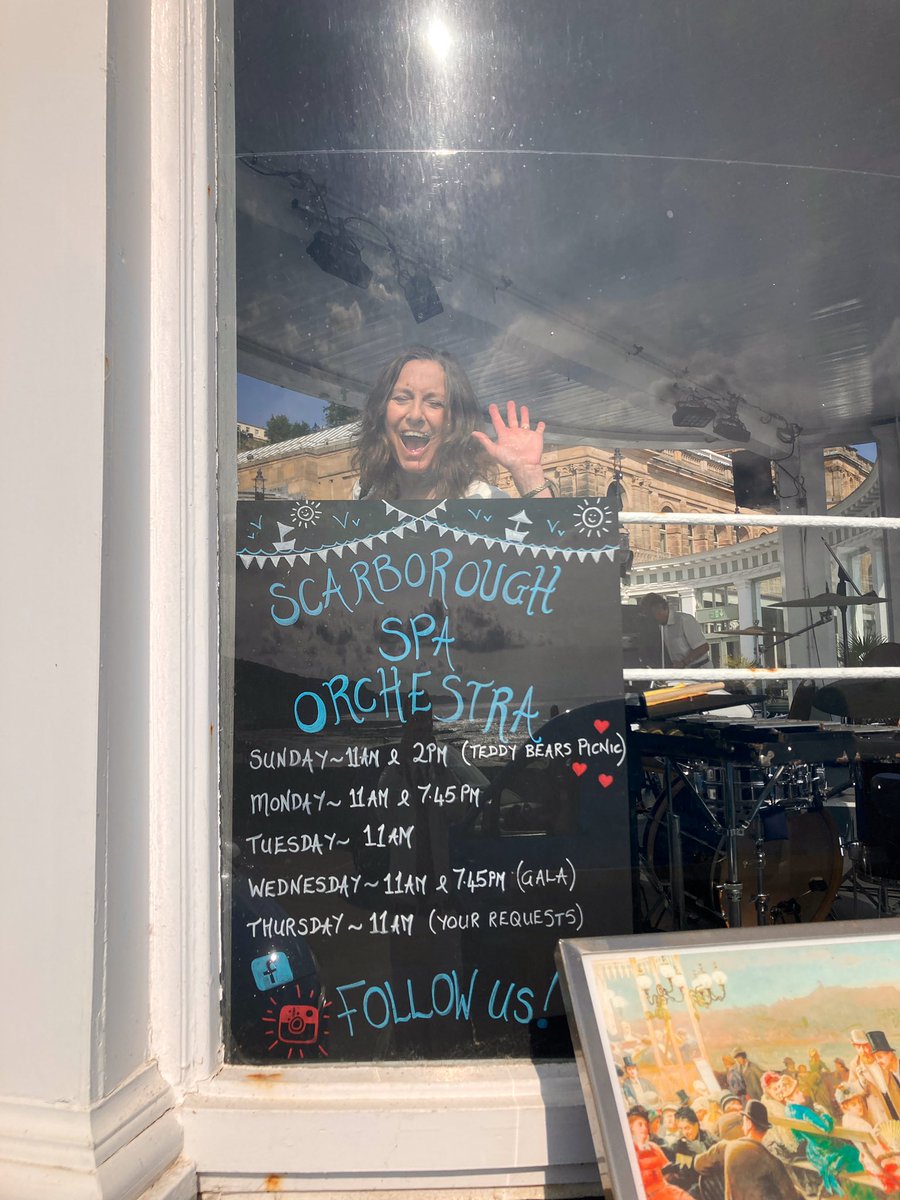 SCARBOROUGH
SPA
ORCHESTRA
SUNDAY~11AM & 2PM (TEDDY BEARS PICNIC)
MONDAY~ 11AM & 7.45PM
TUESDAY~ 11AM
WEDNESDAY~11AM & 7.45PM (GALA)
THURSDAY~ 11AM (YOUR REQUESTS)
f
FOLLOW US!